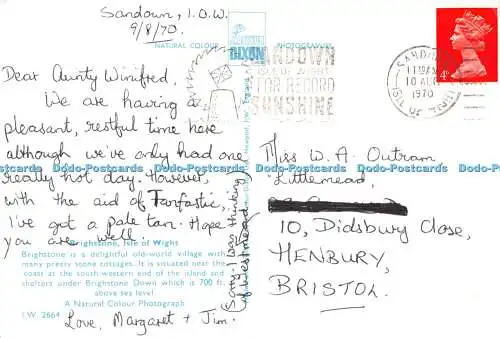 Sandown, I.O.W.
9/8/70.
NATURAL COLOUR
DIXON
PHOTOGRAPH
SANDOWN
ISLE OF WIGHT
FOR RECORD
SUNSHINE
10 AU
1970
4P
Dear Aunty Winifred,
We are having a
pleasant, restful time here
although we've only had one
really hot day. However,
with the aid of Tanfastic,
I've got a pale tan. Hope
you are well.
Love, Margaret + Jim.
(Sorry. I was thinking
of Westmead)
Brighstone, Isle of Wight
Brighstone is a delightful old-world village with
many pretty stone cottages. It is situated near the
coast at the south-western end of the island and
shelters under Brighstone Down which is 700 ft.
above sea level
A Natural Colour Photograph
I.W. 2664
Miss W. A. Outram,
Littlemead,
10, Didsbury Close,
HENBURY,
BRISTOL.
Dodo-Postcards Dodo-Postcards Dodo-Postcards Dodo-Postcards